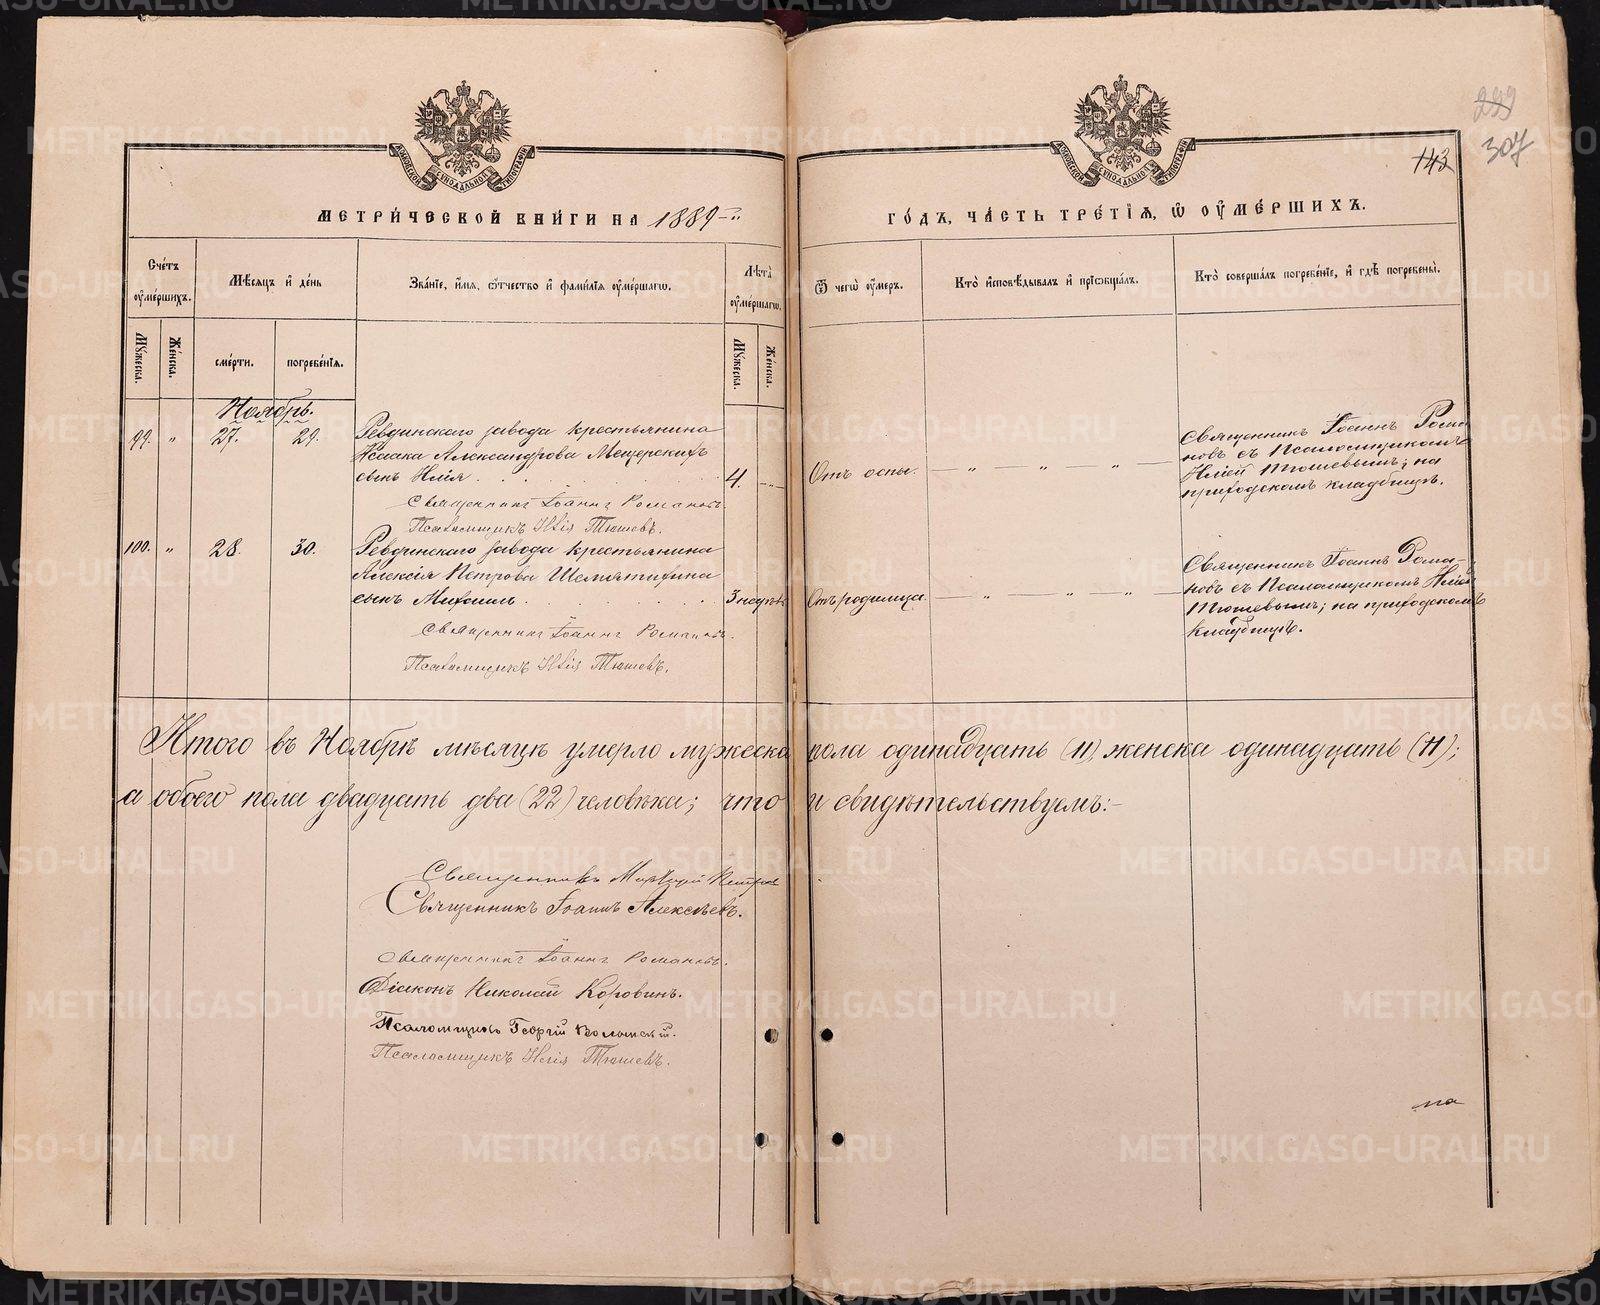 299
307
143
МЕТРИ́ЧЕСКОЙ КНИ́ГИ НА 1889-й
ГО́ДЪ, ЧА́СТЬ ТРЕ́ТІЯ, Ѡ ОУМЕ́РШИХЪ.
МОСКОВСКОЙ СѴНОДАЛЬНОЙ ТИПОГРАФІИ
МОСКОВСКОЙ СѴНОДАЛЬНОЙ ТИПОГРАФІИ
Счетъ оумершихъ.
Мѣсяцъ и день
Званіе, имя, отчество и фамилія оумершагѡ.
Лѣта оумершагѡ.
Ѿ чегѡ оумеръ.
Кто исповѣдывалъ и пріобщалъ.
Кто совершалъ погребеніе, и гдѣ погребены.
Мужеска.
Женска.
смерти.
погребенія.
Мужеска.
Женска.
Ноябрь.
99. „ 27. 29. Ревдинскаго завода крестьянина
Исаака Александрова Мещерскихъ
сынъ Илія . . . 4. Отъ оспы. — „ — „ — „ —
Священникъ Іоаннъ Рома-
новъ съ Псаломщикомъ
Иліей Тюшевымъ; на
приходскомъ кладбищѣ.
Священникъ Іоаннъ Романовъ.
Псаломщикъ Илія Тюшевъ.
100. „ 28. 30. Ревдинскаго завода крестьянина
Алексія Петрова Шемятихина
сынъ Михаилъ . . . 3 недѣль Отъ родимца. — „ — „ — „ —
Священникъ Іоаннъ Рома-
новъ съ Псаломщикомъ Иліей
Тюшевымъ; на приходскомъ
кладбищѣ.
Священникъ Іоаннъ Романовъ.
Псаломщикъ Илія Тюшевъ.
Итого въ Ноябрѣ мѣсяцѣ умерло мужеска пола одинадцать (11), женска одинадцать (11);
а обоего пола двадцать два (22) человѣка; что и свидѣтельствуемъ:-
Священникъ Петровъ
Священникъ Іоаннъ Алексѣевъ.
Священникъ Іоаннъ Романовъ.
Діаконъ Николай Коровинъ.
Псаломщикъ Георгій Волынскій.
Псаломщикъ Илія Тюшевъ.
METRIKI.GASO-URAL.RU